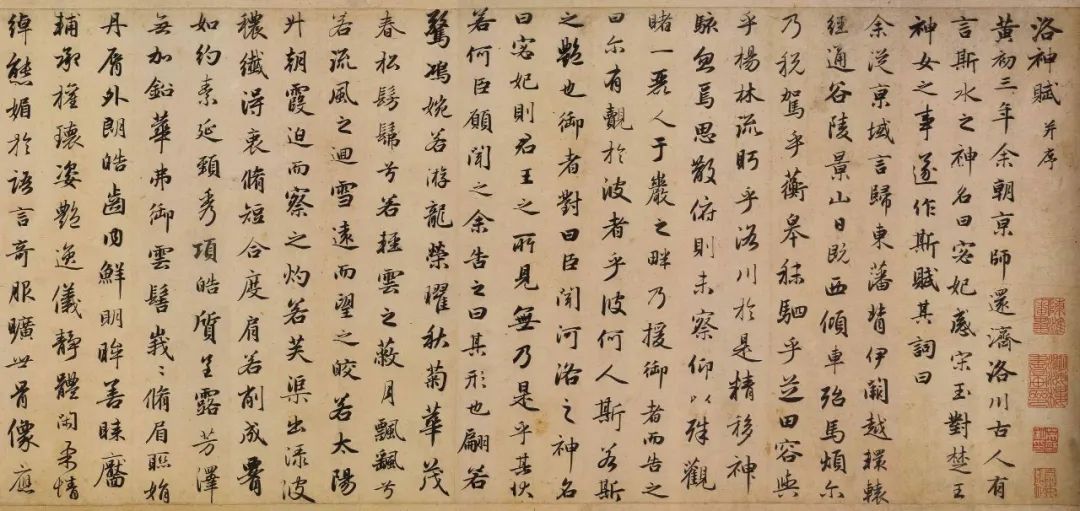 洛神賦 并序
黃初三年余朝京師還濟洛川古人有
言斯水之神名曰宓妃感宋玉對楚王
神女之事遂作斯賦其詞曰
余從京域言歸東藩背伊闕越轘轅
經通谷陵景山日既西傾車殆馬煩尔
乃稅駕乎蘅皋秣駟乎芝田容與
乎楊林流眄乎洛川於是精移神
駭忽焉思散俯則未察仰以殊觀
睹一麗人于巖之畔乃援御者而告之
曰尔有覿於波者乎彼何人斯若斯
之豔也御者對曰臣聞河洛之神名
曰宓妃則君王之所見無乃是乎其狀
若何臣願聞之余告之曰其形也翩若
驚鴻婉若游龍榮曜秋菊華茂
春松髣髴兮若輕雲之蔽月飄颻兮
若流風之迴雪遠而望之皎若太陽
升朝霞迫而察之灼若芙渠出淥波
穠纖得衷脩短合度肩若削成𦝫
如約素延頸秀項皓質呈露芳澤
無加鉛華弗御雲髻峩〻脩眉聯娟
丹脣外朗皓齒内鮮明眸善睞靨
輔承權瓌姿豔逸儀靜體閑柔情
綽態媚於語言奇服曠世骨像應